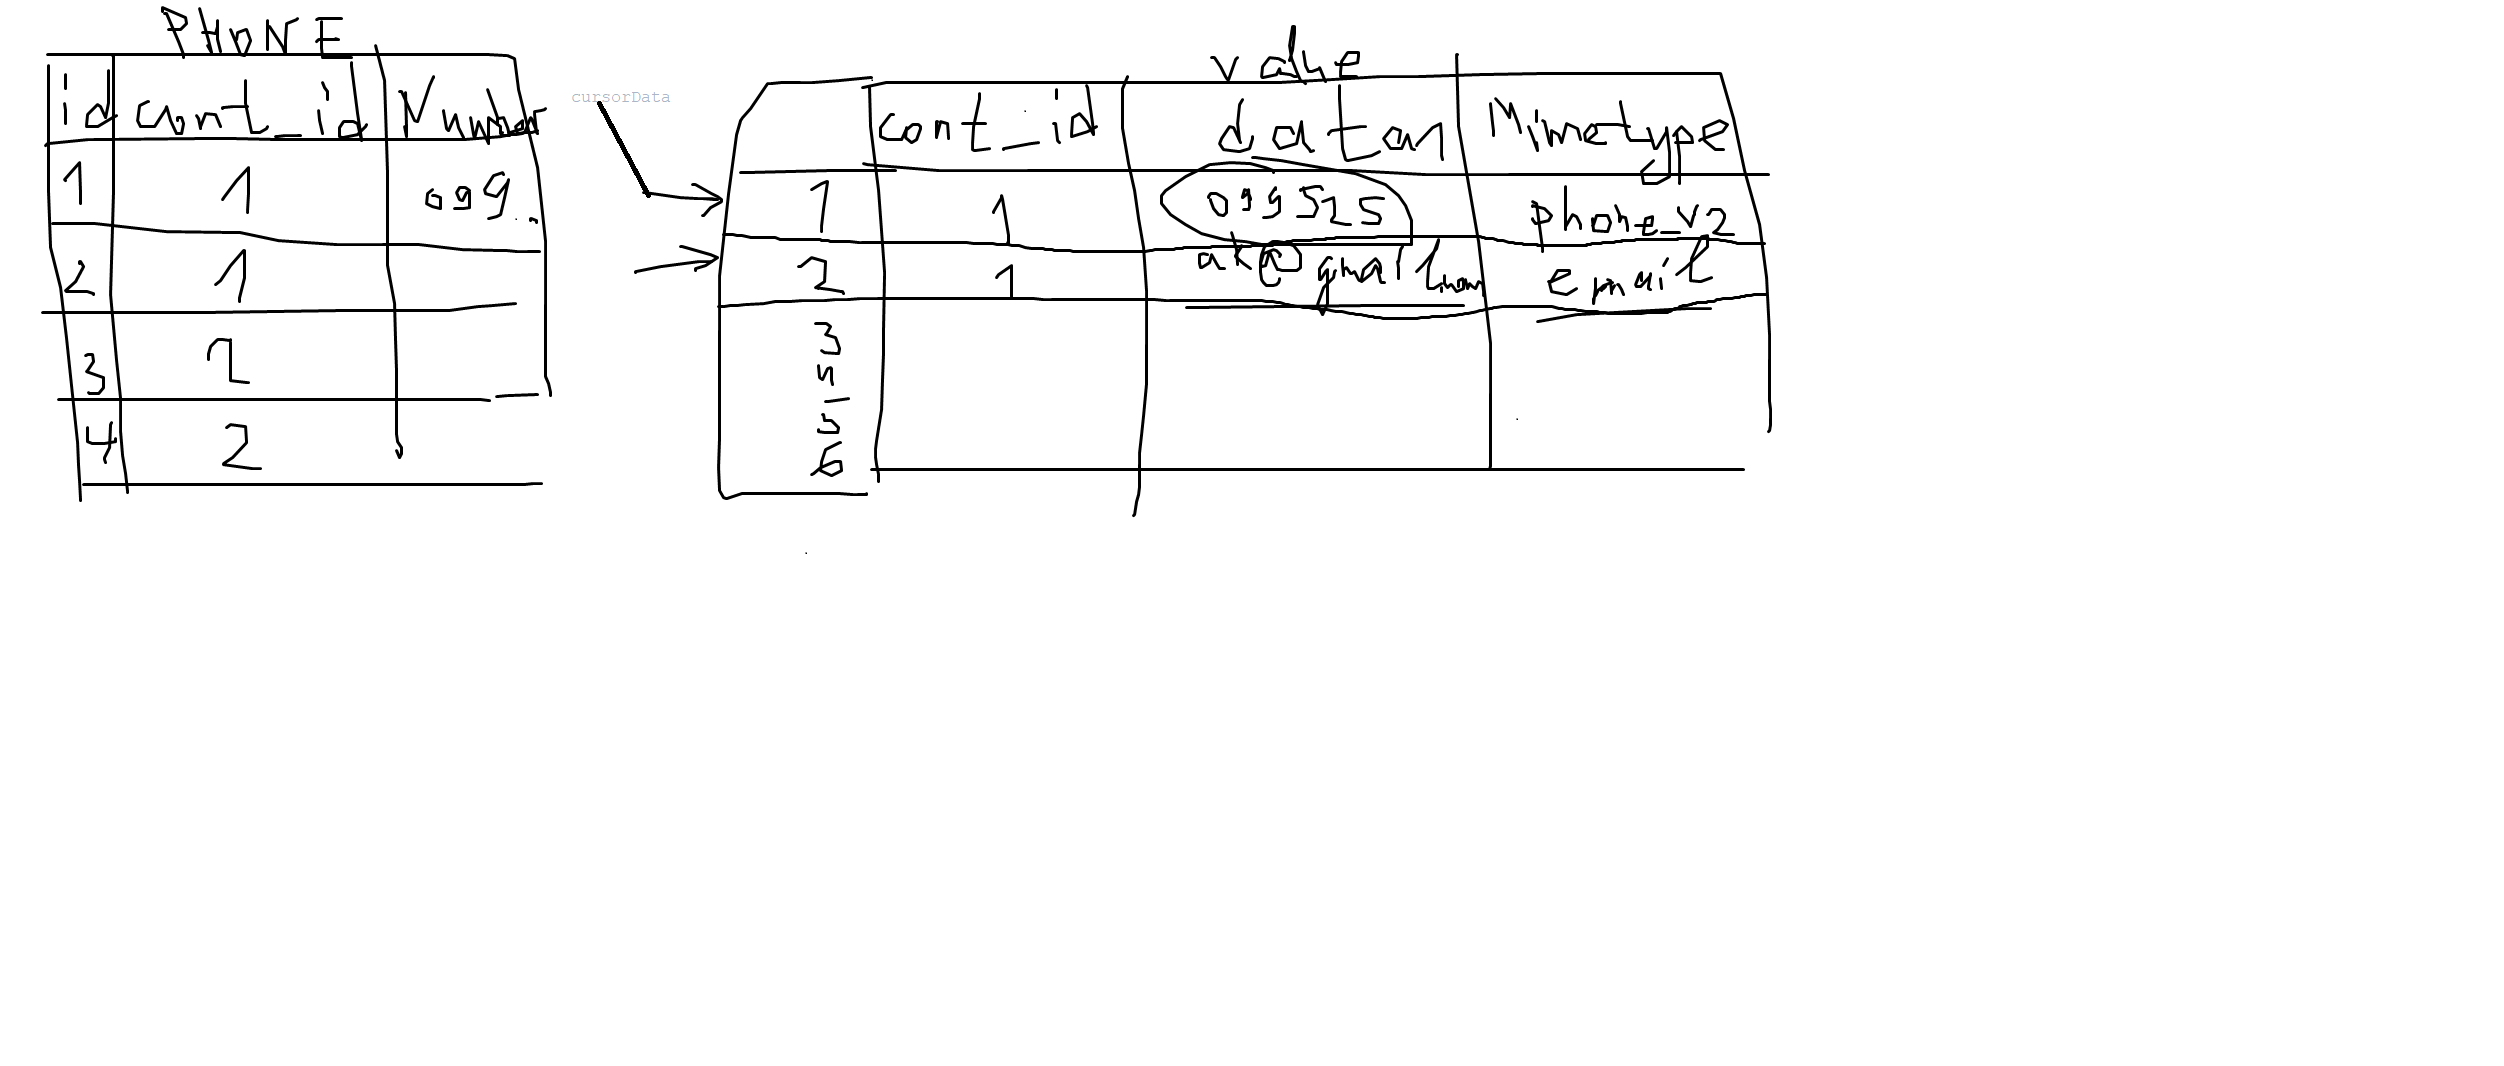 PHONE
id cont_id Number
1 1 099
2 1
3 2
4 2
cursorData
value
cont_id data1 Mimetype
1 1 phone_v2
2 1 email
3
4
5
6